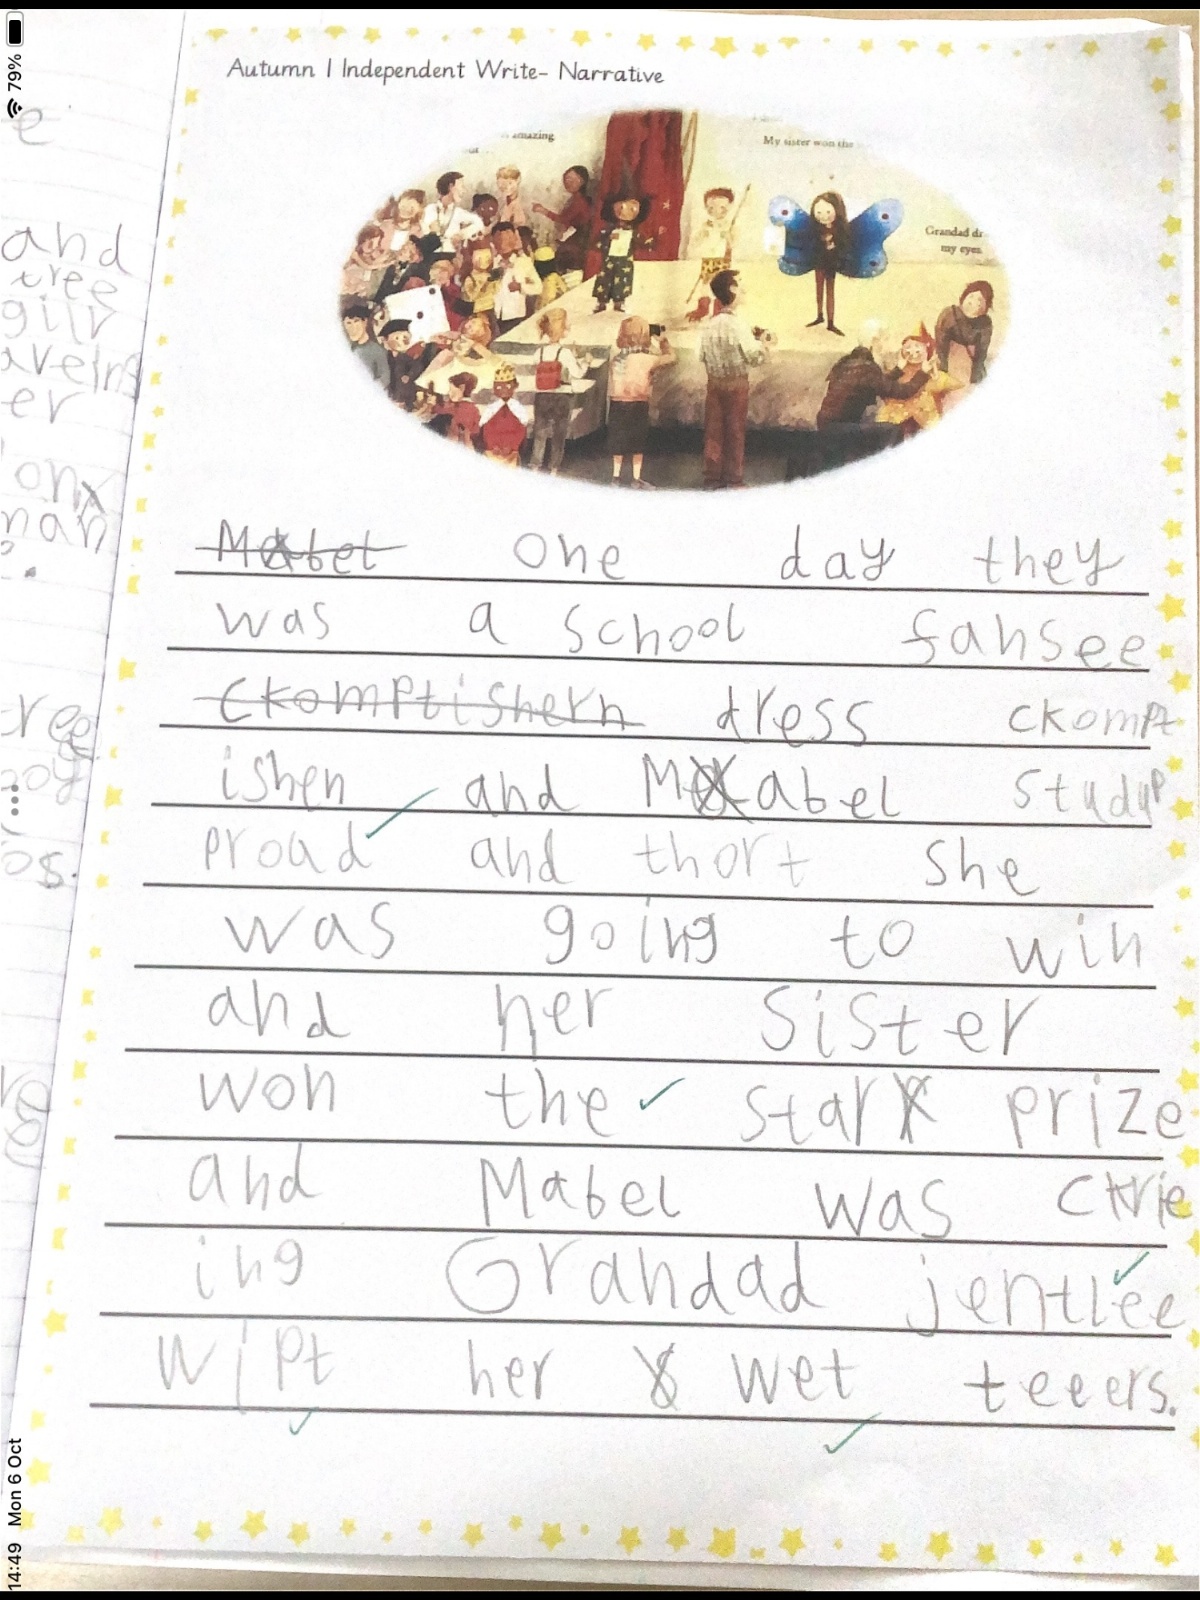 79%
14:49 Mon 6 Oct
Autumn 1 Independent Write- Narrative
amazing
My sister won the
Grandad dr
my eyes
e
and
tree
girr
aveing
er
on
nan
os.
Mabel one day they
was a school fansee
Ckomptishern dress ckompt
ishen and Mabel studup
proud and thort she
was going to win
and her sister
won the star prize
and Mabel was crie
ing Grandad jentlee
wipt her wet teeers.